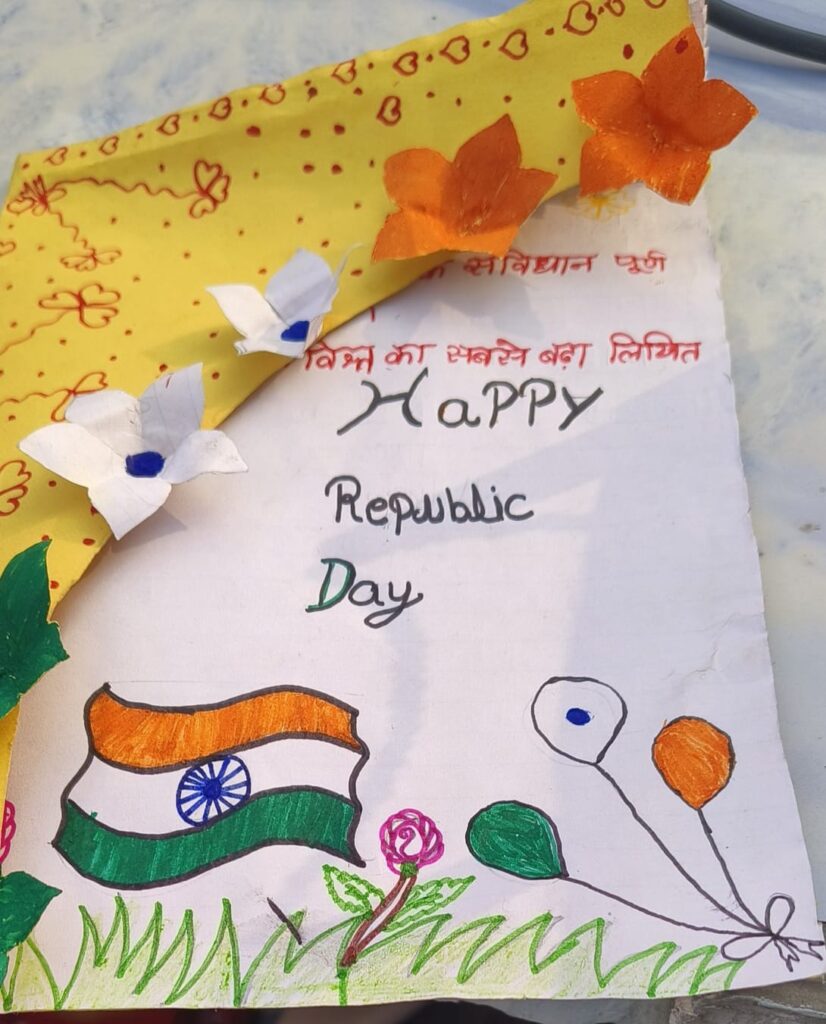 संविधान पूर्ण
विश्व का सबसे बड़ा लिखित
HaPPy
Republic
Day